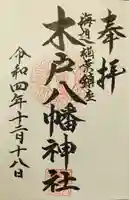 奉拝
海辺稲葉鎮座
木戸八幡神社
令和四年十二月十八日